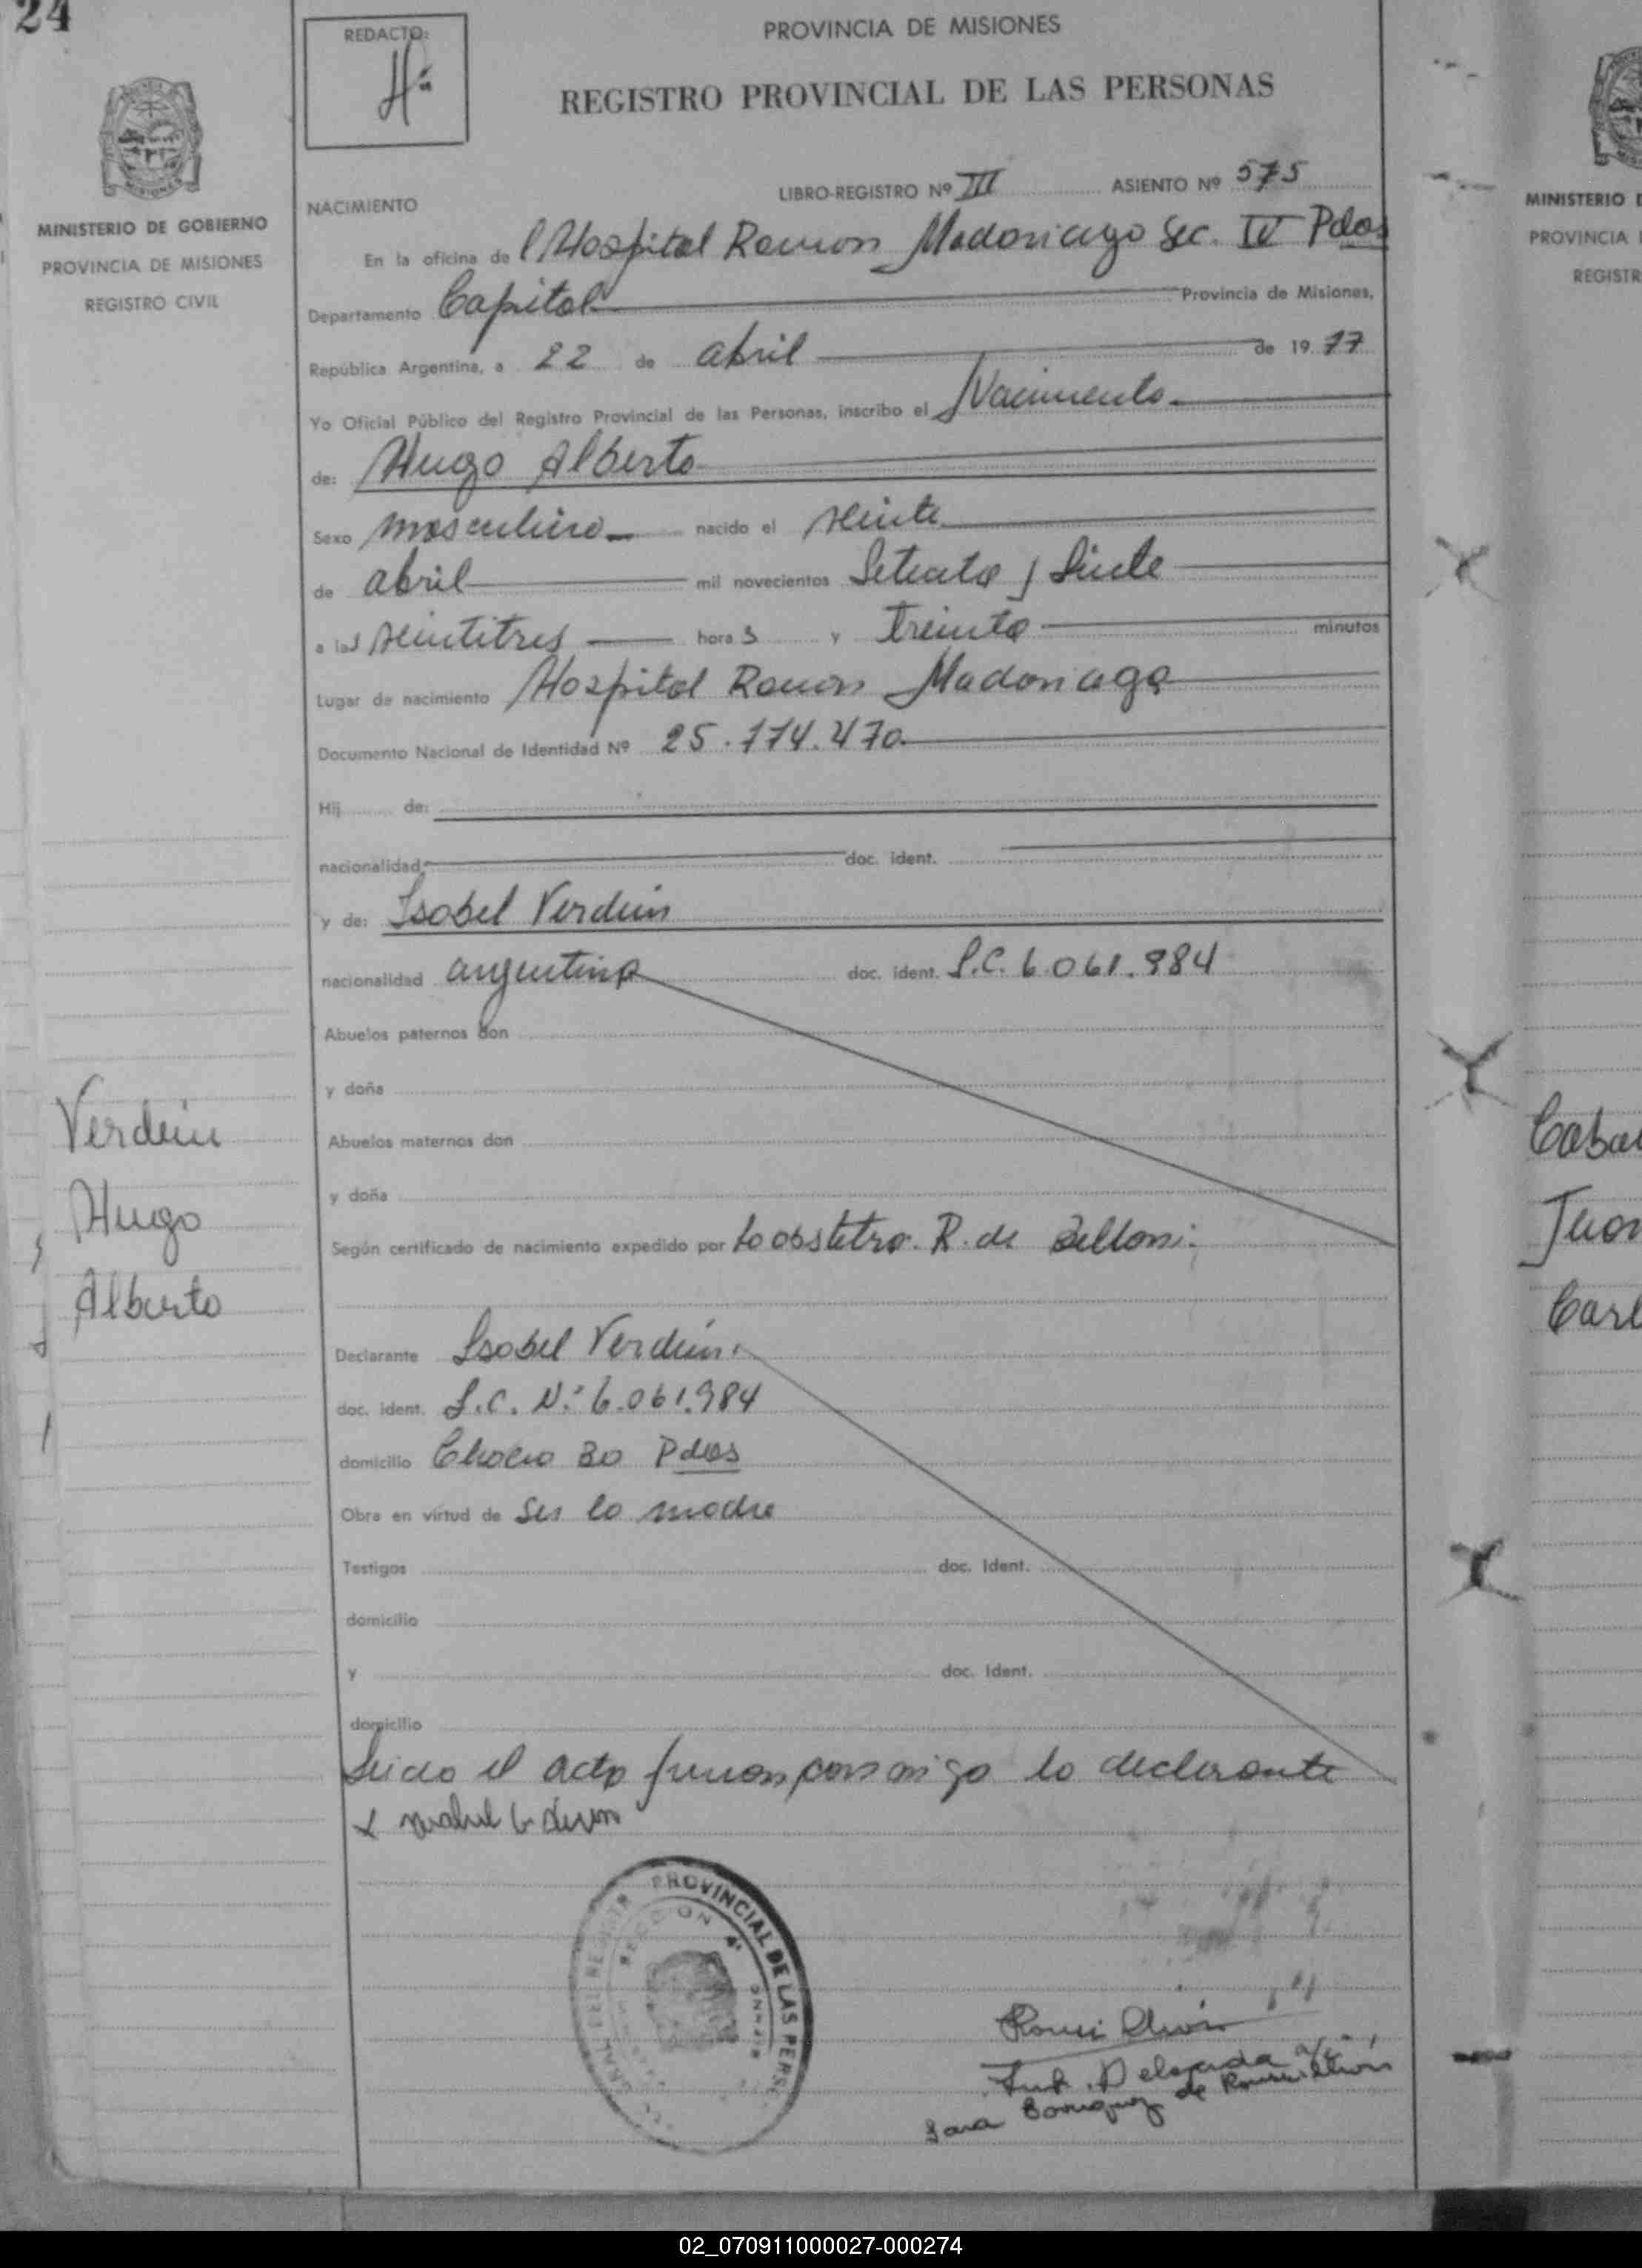 24
MINISTERIO DE GOBIERNO
PROVINCIA DE MISIONES
REGISTRO CIVIL
Verdún
Hugo
Alberto
REDACTO:
PROVINCIA DE MISIONES
REGISTRO PROVINCIAL DE LAS PERSONAS
LIBRO-REGISTRO Nº III ASIENTO Nº 575
NACIMIENTO
En la oficina del Hospital Ramon Madoriaga Sec. IV Pdas
Departamento Capital Provincia de Misiones,
República Argentina, a 22 de abril de 1977
Yo Oficial Público del Registro Provincial de las Personas, inscribo el Nacimiento
de: Hugo Alberto
Sexo masculino nacido el veinte
de abril mil novecientos Setenta y Siete
a las veintitres horas y treinta minutos
Lugar de nacimiento Hospital Ramon Madoriaga
Documento Nacional de Identidad Nº 25.774.470
Hij de:
nacionalidad doc. ident.
y de: Isabel Verdún
nacionalidad argentina doc. ident. L.C. 6.061.984
Abuelos paternos don
y doña
Abuelos maternos don
y doña
Según certificado de nacimiento expedido por la obstetra. R. de Belloni.
Declarante Isabel Verdún.
doc. ident. L.C. Nº 6.061.984
domicilio 30 Pdas
Obra en virtud de Ser la madre
Testigos doc. Ident.
domicilio
y doc. Ident.
domicilio
Leida el acta firman conmigo la declarante
PROVINCIAL DE LAS PERS
Sub. Delegada a/c
Sara de
MINISTERIO
PROVINCIA
REGISTR
Carl
02_070911000027-000274